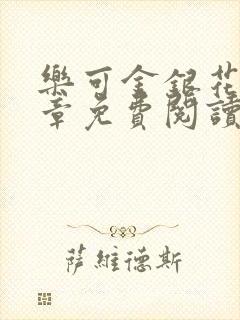 樂可金銀花
章免費閱讀
薩維德斯